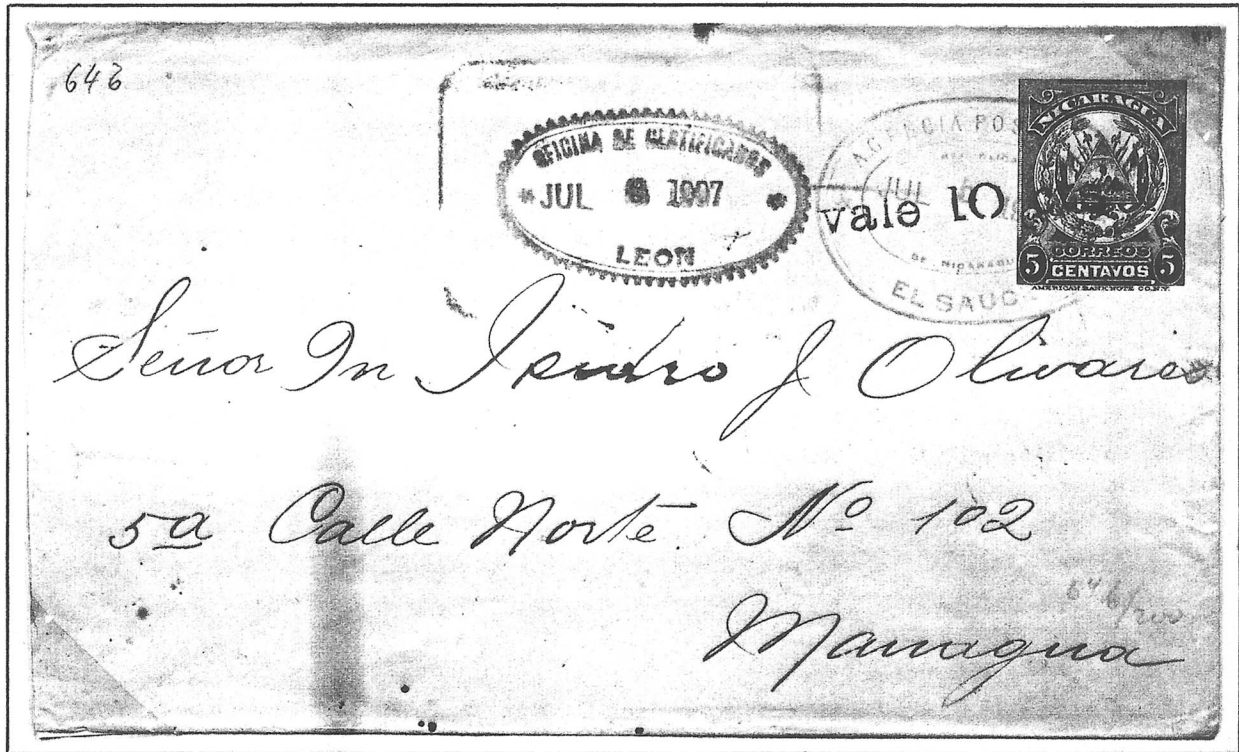 643
OFICINA DE CERTIFICADOS
JUL 1907
LEON
AGENCIA POS
JUL
DE NICARAGU
EL SAUC
vale 10
NICARAGUA
CORREOS
5 CENTAVOS 5
AMERICAN BANK NOTE CO. N.Y.
Señor Dn Isidro J Olivares
5a Calle Norte. No 102
Managua